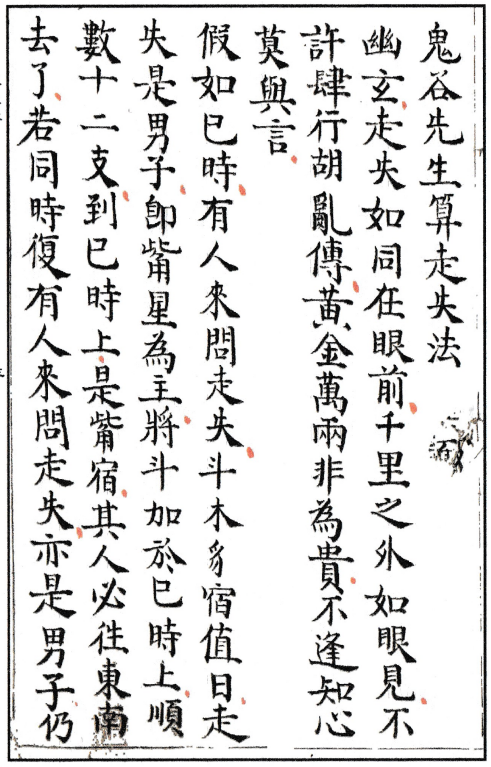 鬼谷先生算走失法
幽玄走失如同在眼前千里之外如眼見不
許肆行胡亂傳黃金萬兩非為貴不逢知心
莫與言
假如巳時有人來問走失斗木豸宿值日走
失是男子卽觜星為主將斗加於巳時上順
數十二支到巳時上是觜宿其人必徃東南
去了若同時復有人來問走失亦是男子仍